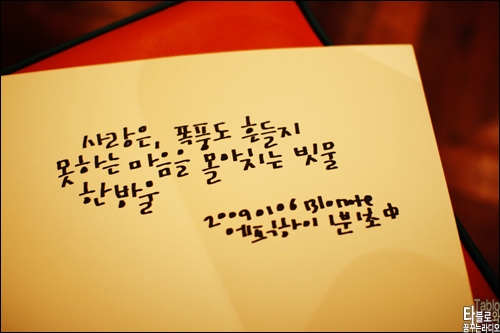 사랑은, 폭풍도 흔들지
못하는 마음을 몰아치는 빗물
한방울
20090106 Blonote
에픽하이 1분 1초 中
Tablo
타블로와
꿈꾸는라디오